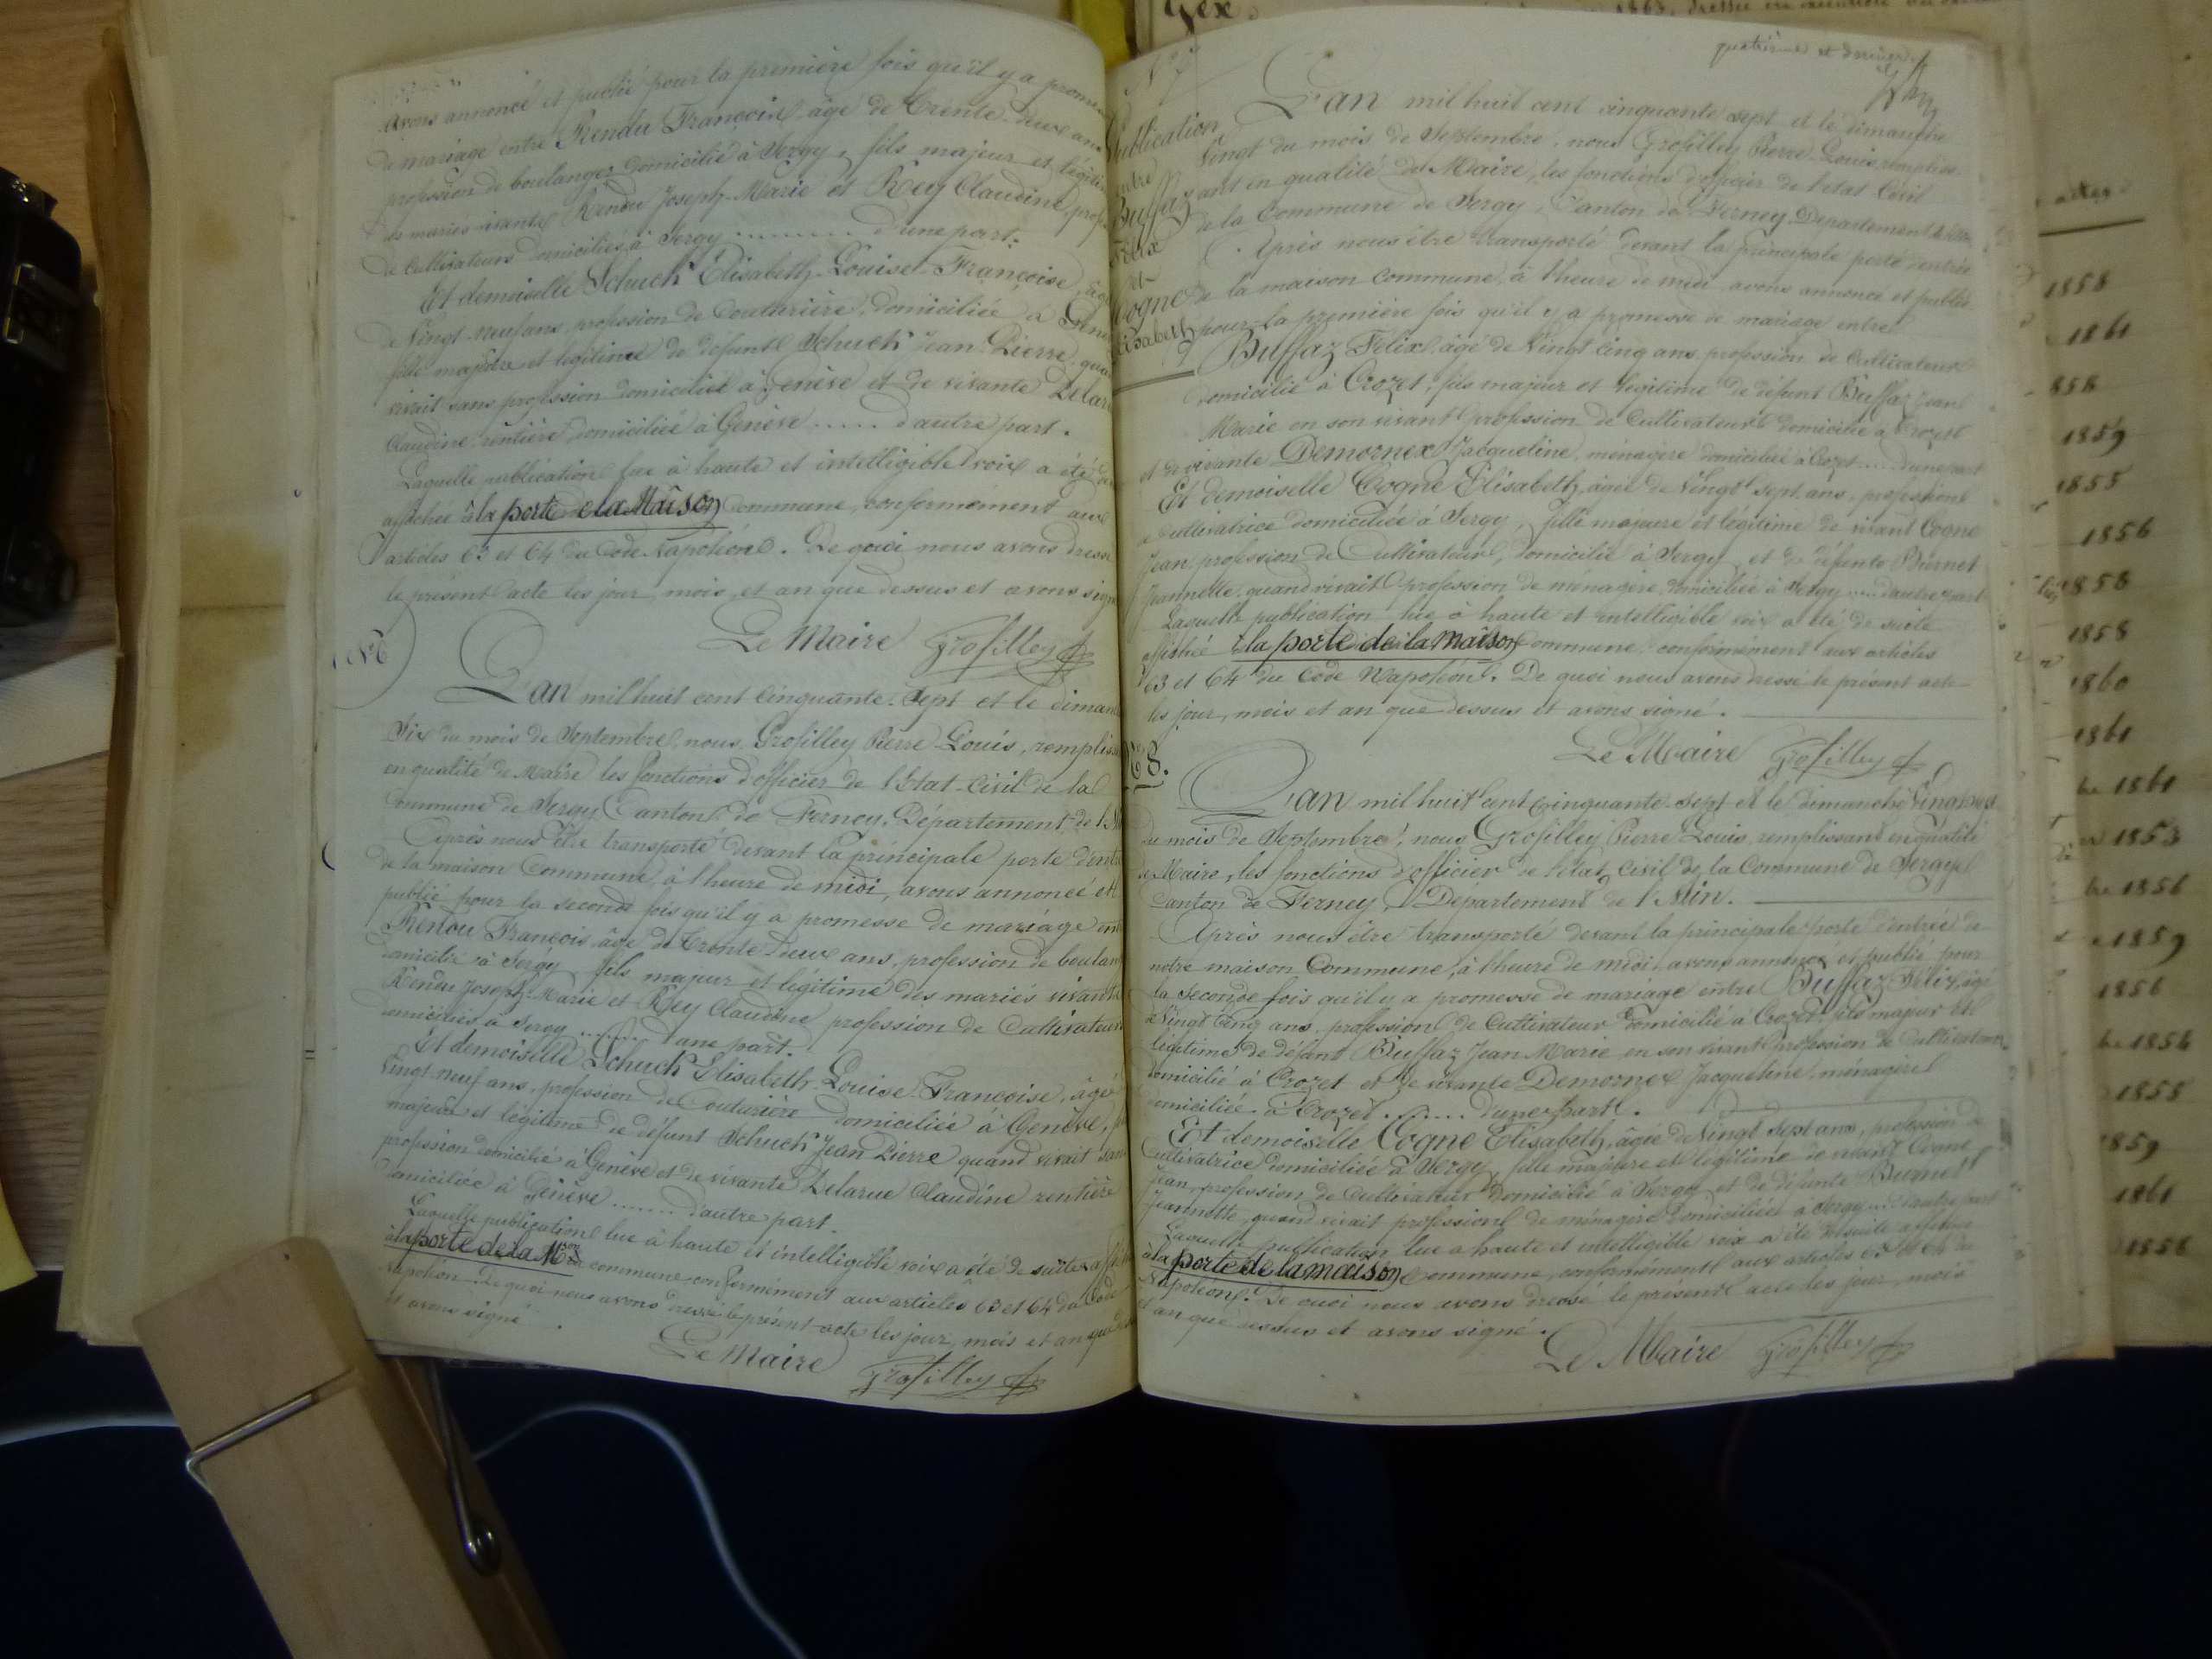 avons annoncé et publié pour la première fois qu'il y a prome
de mariage entre Rendu François, âgé de Trente-deux ans
profession de boulanger domicilié à Sergy, fils majeur et légiti
des mariés vivants Rendu Joseph-Marie et Rey Claudine, profes
de Cultivateurs domiciliés à Sergy ......... d'une part.
Et demoiselle Schuch Elisabeth-Louise-Françoise, âgé
de Vingt-neuf ans, profession de Couturière, domiciliée à Genè
fille majeure et légitime de défunt Schuch Jean Pierre quan
vivait sans profession domicilié à Genève et de vivante Delaru
Claudine rentière domiciliée à Genève ..... d'autre part.
Laquelle publication lue à haute et intelligible voix a été
affichée à la porte de la Maison Commune, conformément aux
articles 63 et 64 du Code Napoléon. De quoi nous avons dressé
le présent acte les jour, mois et an que dessus et avons sign
Le Maire Grosfilley
N° 6
L'an mil huit cent cinquante-Sept et le diman
Six du mois de Septembre, nous Grosfilley Pierre Louis, rempliss
en qualité de Maire les fonctions d'officier de l'Etat-Civil de la
Commune de Sergy, Canton de Ferney, Département de l'Ain
Après nous être transporté devant la principale porte d'entr
de la maison Commune, à l'heure de midi, avons annoncé et
publié pour la seconde fois qu'il y a promesse de mariage ent
Rendu François âgé de Trente-deux ans, profession de boulan
domicilié à Sergy, fils majeur et légitime des mariés vivants
Rendu Joseph-Marie et Rey Claudine profession de Cultivateurs
domiciliés à Sergy ...... d'une part.
Et demoiselle Schuch Elisabeth Louise-Françoise, âgé
Vingt-neuf ans, profession de Couturière domiciliée à Genève,
majeure et légitime de défunt Schuch Jean Pierre quand vivait sans
profession domicilié à Genève et de vivante Delarue Claudine rentière
domiciliée à Genève ....... d'autre part.
Laquelle publication lue à haute et intelligible voix a été de suite
à la porte de la Mson commune conformément aux articles 63 et 64 du Code
Napoléon. De quoi nous avons dressé le présent acte les jour, mois et an que
et avons signé.
Le Maire Grosfilley
Gex
quatrième et dernier
N° 7
Publication
entre
Buffaz
Félix
et
Cogne
Elisabeth
L'an mil huit cent cinquante sept et le dimanche
Vingt du mois de Septembre, nous Grosfilley Pierre-Louis, rempliss-
ant en qualité de Maire, les fonctions d'officier de l'Etat Civil
de la Commune de Sergy, Canton de Ferney, Département de l'Ain
Après nous être transporté devant la principale porte d'entrée
de la maison Commune, à l'heure de midi avons annoncé et publié
pour la première fois qu'il y a promesse de mariage entre
Buffaz Félix, âgé de Vingt Cinq ans, profession de Cultivateur
domicilié à Crozet, fils majeur et légitime de défunt Buffaz Jean
Marie en son vivant profession de Cultivateur domicilié à Crozet
et de vivante Demornex Jacqueline, ménagère domiciliée à Crozet .... d'une part
Et demoiselle Cogne Elisabeth, âgée de Vingt sept ans, profession
de Cultivatrice domiciliée à Sergy, fille majeure et légitime de vivant Cogne
Jean profession de Cultivateur, domicilié à Sergy et de défunte Burnet
Jeannette, quand vivait profession de ménagère domiciliée à Sergy ..... d'autre part
Laquelle publication lue à haute et intelligible voix a été de suite
affichée à la porte de la Maison Commune, conformément aux articles
63 et 64 du Code Napoléon. De quoi nous avons dressé le présent acte
les jour, mois et an que dessus et avons signé.
Le Maire Grosfilley
N° 8.
L'an mil huit cent cinquante sept et le dimanche Vingt sept
du mois de Septembre, nous Grosfilley Pierre Louis remplissant en qualité
de Maire, les fonctions d'officier de l'état civil de la Commune de Sergy
Canton de Ferney, Département de l'Ain.
Après nous être transporté devant la principale porte d'entrée de
notre maison Commune, à l'heure de midi, avons annoncé et publié pour
la seconde fois qu'il y a promesse de mariage entre Buffaz Félix, âgé
de Vingt Cinq ans, profession de Cultivateur domicilié à Crozet, fils majeur et
légitime de défunt Buffaz Jean Marie, en son vivant profession de Cultivateur
domicilié à Crozet et de vivante Demornex Jacqueline, ménagère
domiciliée à Crozet ....... d'une part.
Et demoiselle Cogne Elisabeth, âgée de Vingt sept ans, profession de
Cultivatrice domiciliée à Sergy, fille majeure et légitime de vivant Cogne
Jean, profession de Cultivateur domicilié à Sergy et de défunte Burnet
Jeannette, quand vivait profession de ménagère domiciliée à Sergy ... d'autre part
Laquelle publication lue à haute et intelligible voix a été de suite affichée
à la porte de la maison Commune, conformément aux articles 63 et 64 du
Napoléon. De quoi nous avons dressé le présent acte les jour, mois
et an que dessus et avons signé.
Le Maire Grosfilley
1858
1861
858
1859
1855
1856
1858
1858
1860
1861
1861
1853
1856
1859
1856
1856
1858
1859
1861
1856